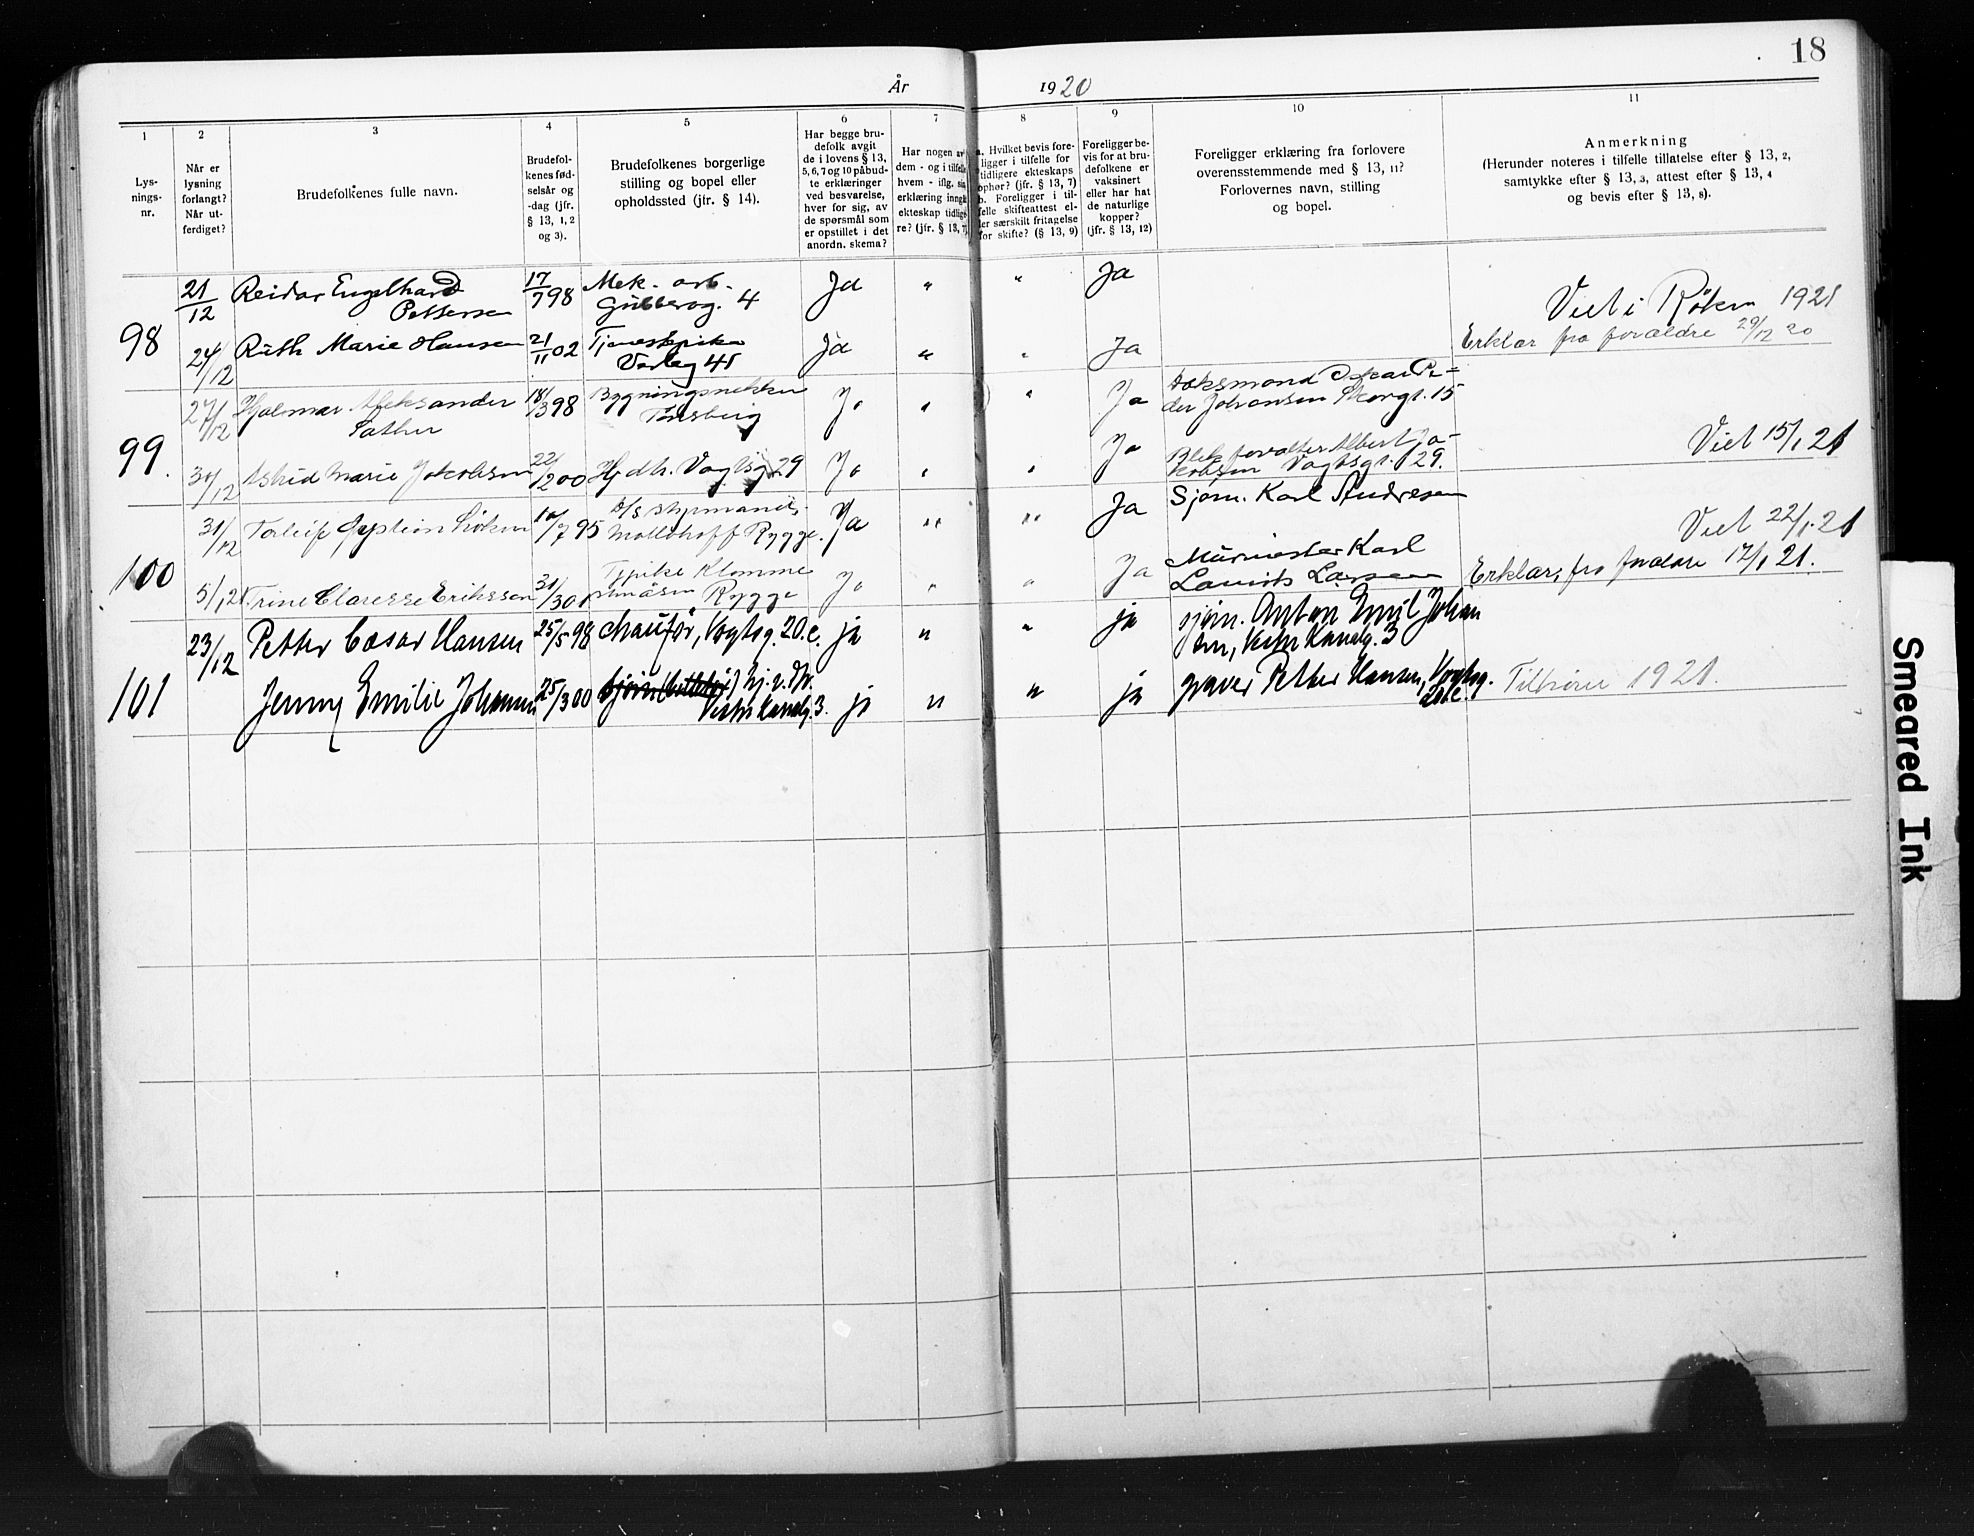 18
År 1920
1 2 3 4 5 6 7 8 9 10 11
Lys-
nings-
nr.
Når er
lysning
forlangt?
Når ut-
ferdiget?
Brudefolkenes fulle navn.
Brudefol-
kenes fød-
selsår og
-dag (jfr.
§ 13, 1, 2
og 3).
Brudefolkenes borgerlige
stilling og bopel eller
opholdssted (jfr. § 14).
Har begge bru-
defolk avgit
de i lovens § 13,
5, 6, 7 og 10 påbud-
te erklæringer
ved besvarelse,
hver for sig, av
de spørsmål som
er opstillet i det
anordn. skema?
Har nogen av
dem - og i tilfelle
hvem - iflg. sin
erklæring inngåt
ekteskap tidlige-
re? (jfr. § 13, 7)
a. Hvilket bevis fore-
ligger i tilfelle for
tidligere ekteskaps
ophør? (jfr. § 13, 7)
b. Foreligger i til-
felle skifteattest el-
ler særskilt fritagelse
for skifte? (§ 13, 9)
Foreligger be-
vis for at bru-
defolkene er
vaksinert
eller har hat
de naturlige
kopper?
(jfr. § 13, 12)
Foreligger erklæring fra forlovere
overensstemmende med § 13, 11?
Forlovernes navn, stilling
og bopel.
Anmerkning
(Herunder noteres i tilfelle tillatelse efter § 13, 2,
samtykke efter § 13, 3, attest efter § 13, 4
og bevis efter § 13, 8).
98
21/12 Reidar Engelhard 17/7 98 Mek. arb. Ja " " Ja
Pettersen 4
Viet i Røken 1921
24/12 Ruth Marie Hansen 21/11 02 Tjenestepike Ja " " Ja Erklær fra forældre 29/12 20
Varleg 41
99.
27/12 Hjalmar Aleksander 18/3 98 Bygningssnekker Ja " " Ja Oskar Pe-
Sæther Tønsberg der Johansen Storgt. 15
30/12 Astrid Marie Jakobsen 22/12 00 Hj. dtr. Vogtsg. 29 Ja " " Ja Albert Ja-
kobsen Vogtsgt. 29. Viet 15/1 21
100
31/12 10/7 95 Rygge. Ja " " Ja Sjøm. Karl Andresen
Viet 22/1 21
5/1 21. Trine Claresse Erikssen 31/3 01 Tjpike Ja " " Ja Murmester Karl
Rygge Laurits Larsen Erklær. fra forældre 12/1 21.
101
23/12 Petter Cæsar Hansen 25/5 98 Chaufør, Vogtsg. 20.c. ja " " ja sjøm. Anton Emil Johan
sen, Vestre Kanalg. 3
Jenny Emilie Johansen 25/3 00 Vestre Kanalg. 3. ja " " ja graver Petter Hansen, Vogtsg.
20.c. Tilføres 1921.
Smeared Ink